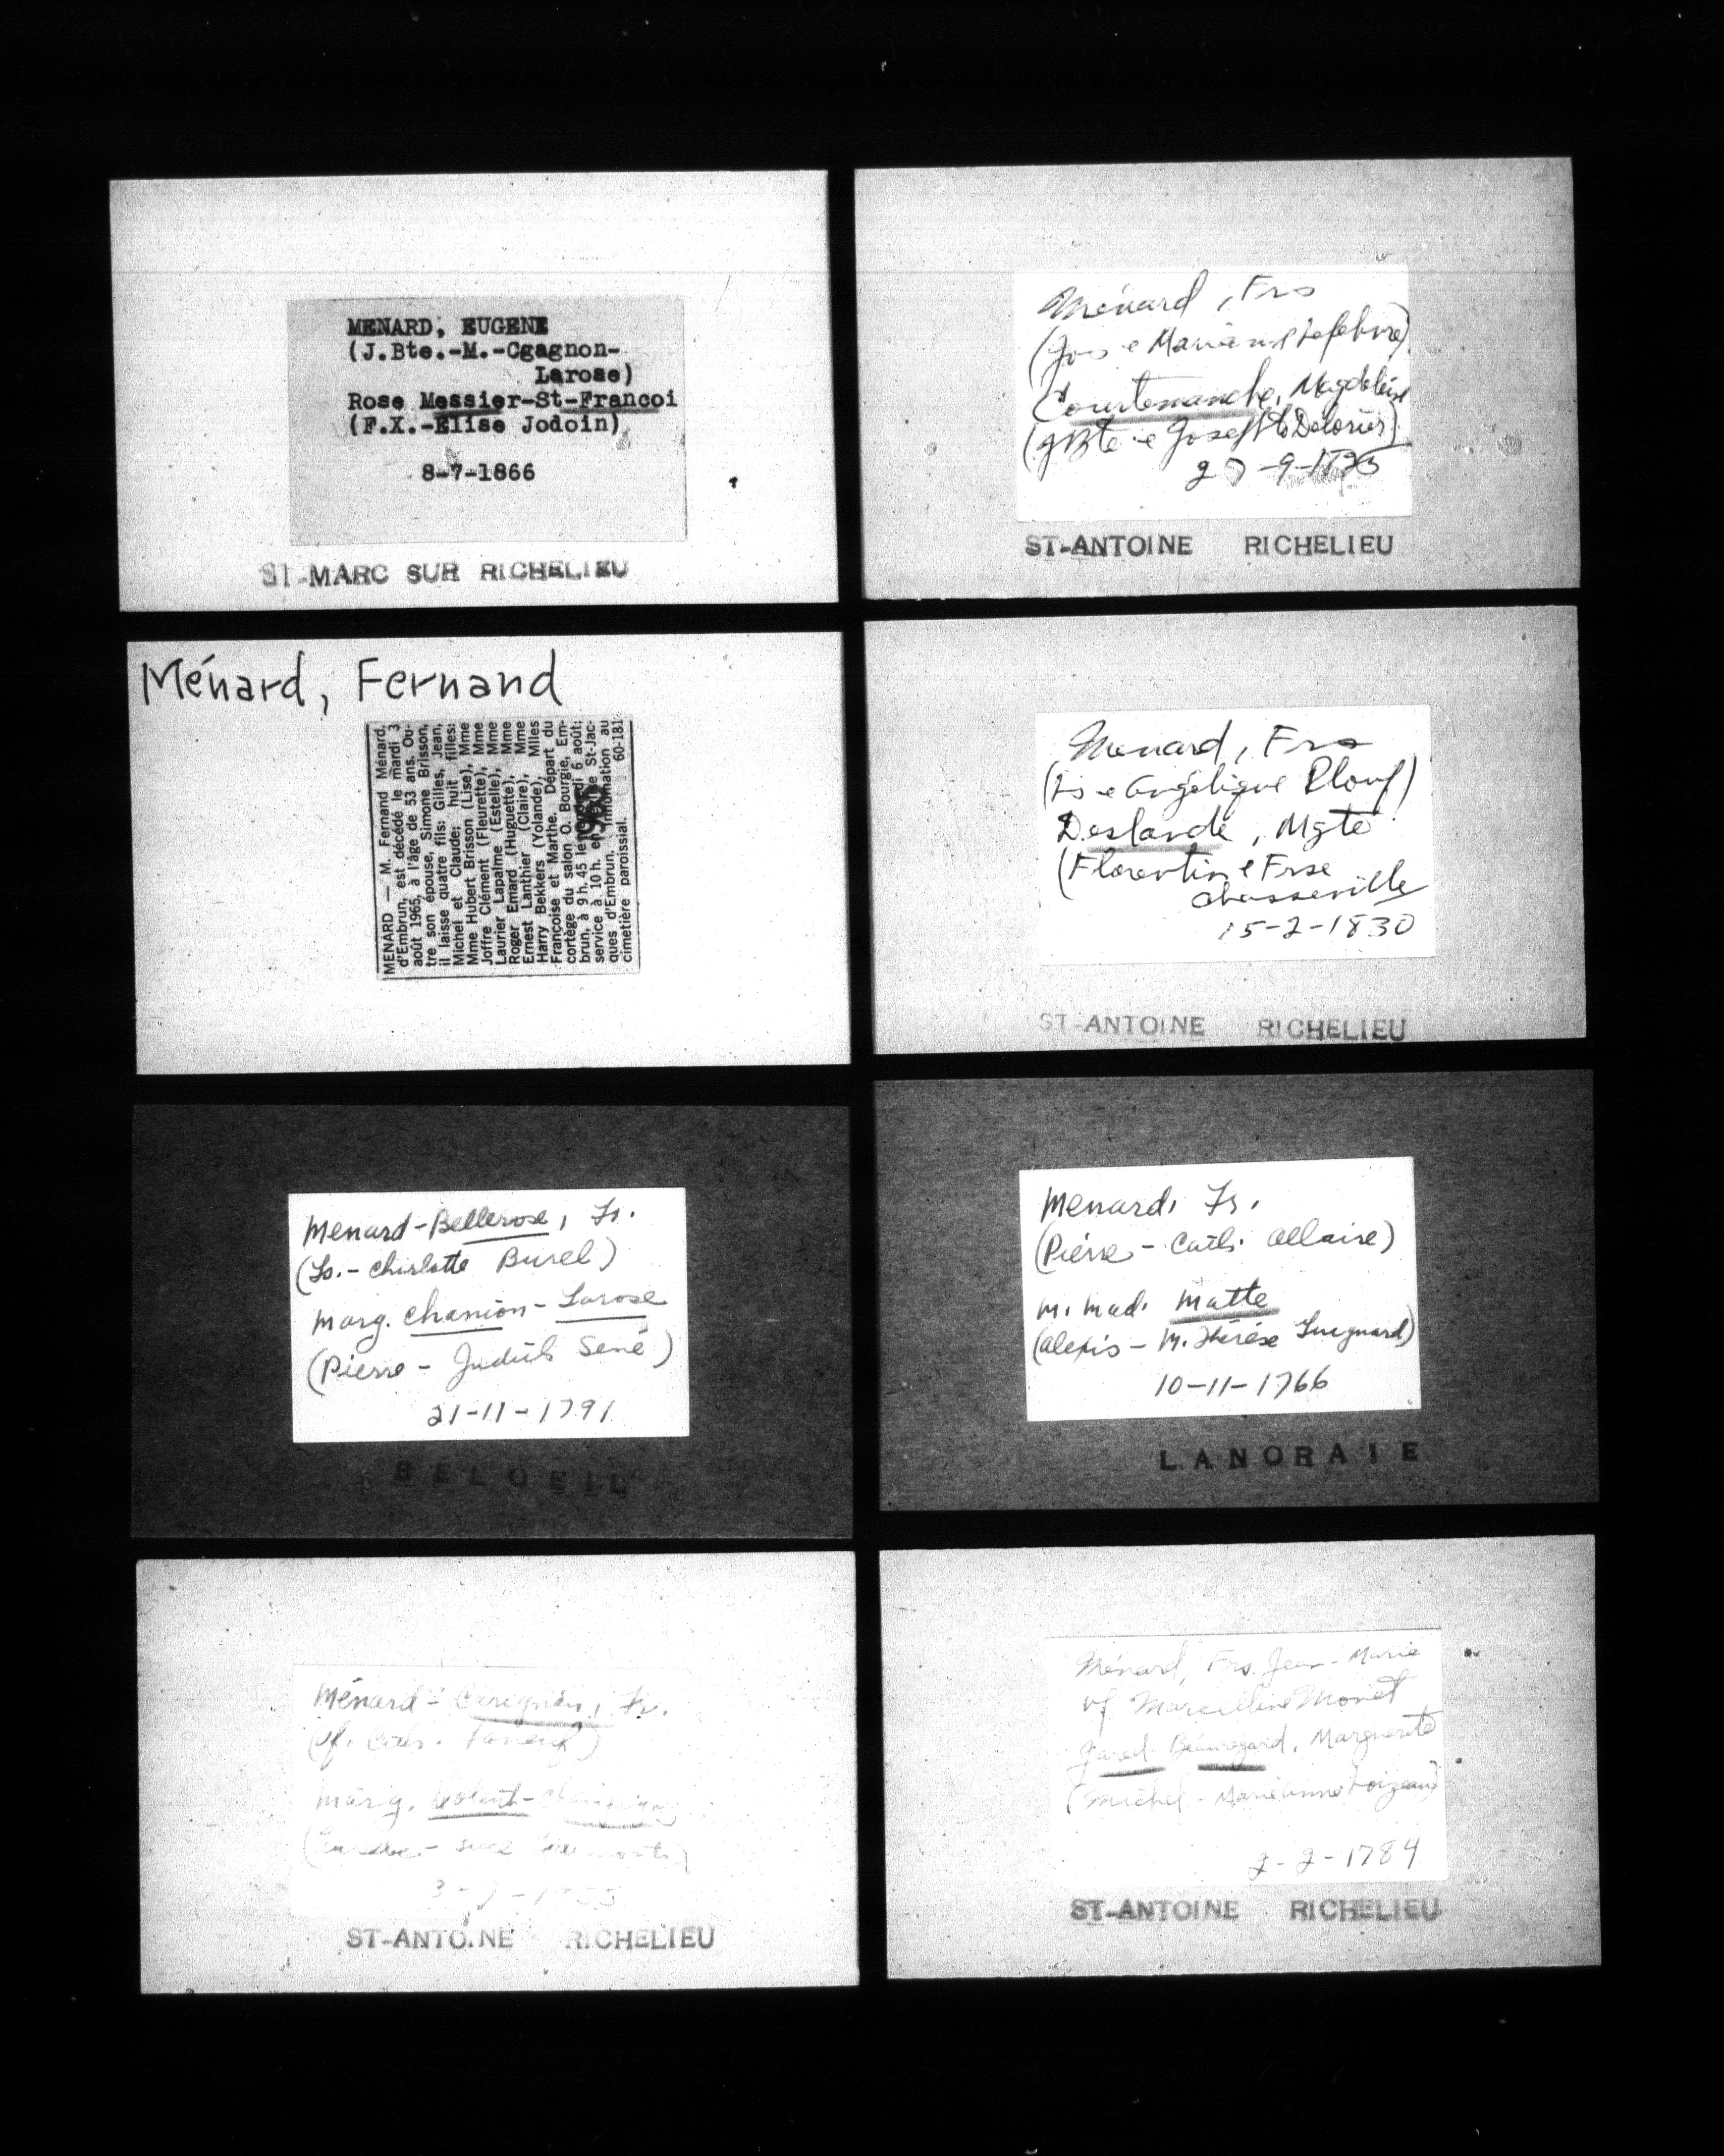 MENARD, EUGENE
(J.Bte.-M.-Cgagnon-
Larose)
Rose Messier-St-Francoi
(F.X.-Elise Jodoin)
8-7-1866
ST-MARC SUR RICHELIEU
Ménard, Fernand
MENARD — M. Fernand Ménard,
d'Embrun, est décédé le mardi 3
août 1965, à l'âge de 53 ans. Ou-
tre son épouse, Simone Brisson,
il laisse quatre fils: Gilles, Jean,
Michel et Claude; huit filles:
Mme Hubert Brisson (Lise), Mme
Joffre Clément (Fleurette), Mme
Laurier Lapalme (Estelle), Mme
Roger Emard (Huguette), Mme
Ernest Lanthier (Claire), Mme
Harry Bekkers (Yolande), Mlles
Françoise et Marthe. Départ du
cortège du salon O. Bourgie, Em-
brun, à 9 h. 45 le 6 août;
service à 10 h. St-Jac-
ques d'Embrun. Inhumation au
cimetière paroissial. 60-181
1965
Menard-Bellerose, Fr.
(Ls.- Charlotte Burel)
marg. chanion-Larose
(Pierre - Judith Sené)
21-11-1791
BELOEIL
Ménard-, Fr.
(vf. Cath.
marg.
ST-ANTOINE RICHELIEU
Ménard, Frs
(Jos e Marianne Lefebvre)
Courtemanche, Magdeleine
(JBte e Josephte Delorier)
ST-ANTOINE RICHELIEU
Menard, Frs
(Ls e Angélique Plouf)
Deslande, Mgte
(Florentin e Frse
Chasseville
15-2-1830
ST-ANTOINE RICHELIEU
Menard, Fr.
(Pierre - Cath. Allaire)
M. Mad. Matte
(Alexis - M. Thérèse Guignard)
10-11-1766
LANORAIE
Ménard, Frs. Jean-Marie
vf Marcelline Monet
Jared Beauregard, Marguerite
(Michel - Marieanne Loizeau)
2-2-1784
ST-ANTOINE RICHELIEU